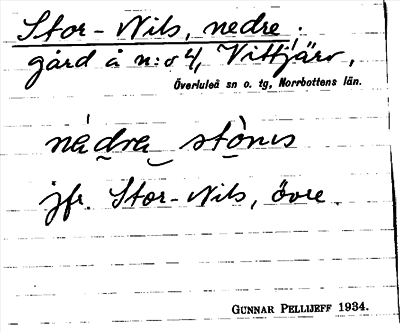 Stor-Nils, nedre.
gård å n:o 4, Vittjärv,
Överluleå sn o. tg, Norrbottens län.
nädra stònes
jfr. Stor-Nils, övre.
GUNNAR PELLIJEFF 1934.